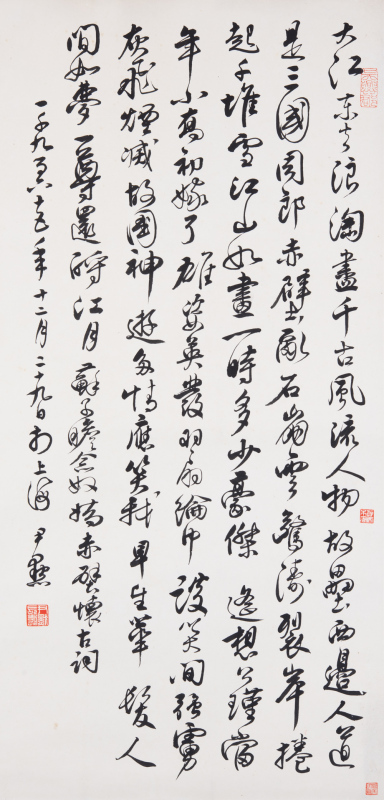 大江東去浪淘盡千古風流人物故壘西邊人道
是三國周郎赤壁亂石崩雲驚濤裂岸捲
起千堆雪江山如畫一時多少豪傑遙想公瑾當
年小喬初嫁了雄姿英發羽扇綸巾談笑間強虜
灰飛煙滅故國神遊多情應笑我早生華髮人
間如夢一尊還酹江月 蘇子瞻念奴嬌赤壁懷古詞
一千九百六十五年十二月二十九日於上海 尹默